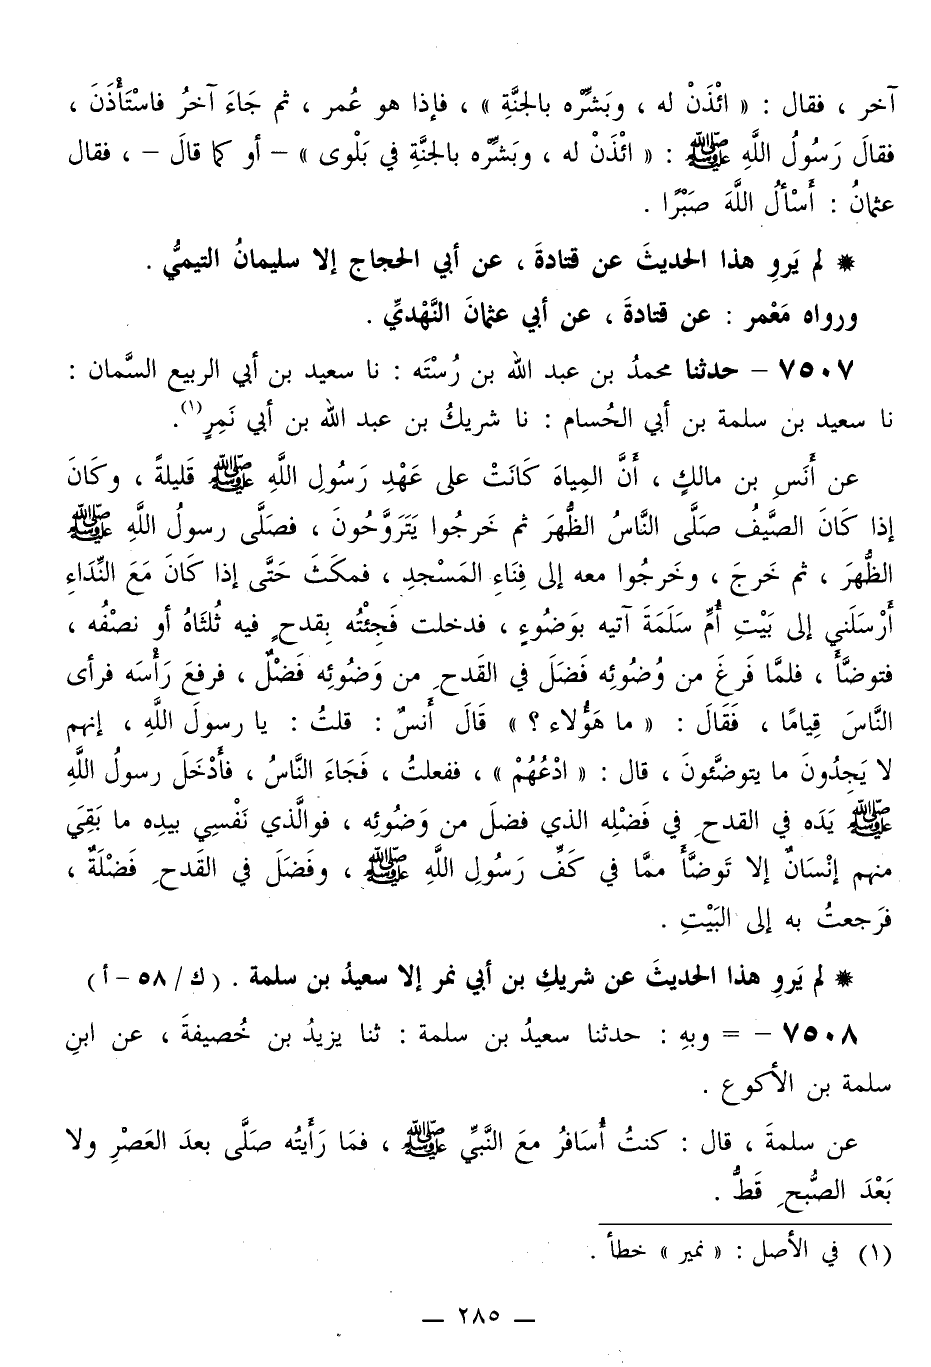 آخر ، فقال : « ائْذَنْ له ، وبَشِّرْه بالجنَّةِ » ، فإذا هو عُمر ، ثم جَاءَ آخرُ فاسْتَأْذَنَ ،
فقالَ رَسُولُ اللَّهِ ﷺ : « ائْذَنْ له ، وبَشِّرْه بالجنَّةِ في بَلْوى » – أو كما قالَ – ، فقال
عثمانُ : أَسْألُ اللَّهَ صَبْرًا .
* لم يَروِ هذا الحديثَ عن قتادةَ ، عن أبي الحجاج إلا سليمانُ التيميُّ .
ورواه مَعْمر : عن قتادةَ ، عن أبي عثمانَ النَّهْديِّ .
٧٥٠٧ – حدثنا محمدُ بن عبد الله بن رُسْتَه : نا سعيد بن أبي الربيع السَّمان :
نا سعيد بن سلمة بن أبي الحُسام : نا شريكُ بن عبد الله بن أبي نَمِرٍ(١).
عن أَنَسِ بن مالكٍ ، أَنَّ المِياهَ كَانَتْ على عَهْدِ رَسُولِ اللَّهِ ﷺ قَليلةً ، وكَانَ
إذا كَانَ الصَّيفُ صَلَّى النَّاسُ الظُّهرَ ثم خَرجُوا يَتَروَّحُونَ ، فصَلَّى رسولُ اللَّهِ ﷺ
الظُّهرَ ، ثم خَرجَ ، وخَرجُوا معه إلى فِنَاءِ المَسْجدِ ، فمكَثَ حَتَّى إذا كَانَ مَعَ النِّدَاءِ
أَرْسَلَني إلى بَيْتِ أُمِّ سَلَمَةَ آتيه بوَضُوءٍ ، فدخلت فَجِئْتُه بِقدحٍ فيه ثُلثَاهُ أو نصْفُه ،
فتوضَّأَ ، فلمَّا فَرغَ من وُضُوئِه فَضَلَ في القَدحِ من وَضُوئِه فَضْلٌ ، فرفعَ رَأْسَه فرأى
النَّاسَ قِيامًا ، فَقَالَ : « ما هَؤُلاء ؟ » قَالَ أَنسٌ : قلتُ : يا رسولَ اللَّهِ ، إنهم
لا يَجِدُونَ ما يتوضَّئونَ ، قال : « ادْعُهُمْ » ، ففعلتُ ، فَجَاءَ النَّاسُ ، فأَدْخَلَ رسولُ اللَّهِ
ﷺ يَدَه في القدحِ في فَضْلِه الذي فضلَ من وَضُوئِه ، فوالَّذي نَفْسِي بيدِه ما بَقِيَ
منهم إنْسَانٌ إلا تَوضَّأَ ممَّا في كَفِّ رَسُولِ اللَّهِ ﷺ ، وفَضَلَ في القَدحِ فَضْلَةٌ ،
فرَجعتُ به إلى البَيْتِ .
* لم يَروِ هذا الحديثَ عن شريكِ بن أبي نمر إلا سعيدُ بن سلمة . ( ك / ٥٨ – أ )
٧٥٠٨ – = وبهِ : حدثنا سعيدُ بن سلمة : ثنا يزيدُ بن خُصيفةَ ، عن ابنِ
سلمة بن الأكوع .
عن سلمةَ ، قال : كنتُ أُسَافرُ معَ النَّبيِّ ﷺ ، فمَا رَأَيتُه صَلَّى بعدَ العَصْرِ ولا
بَعْدَ الصُّبحِ قَطُّ .
(١) في الأصل : « نمير » خطأ .
– ٢٨٥ –